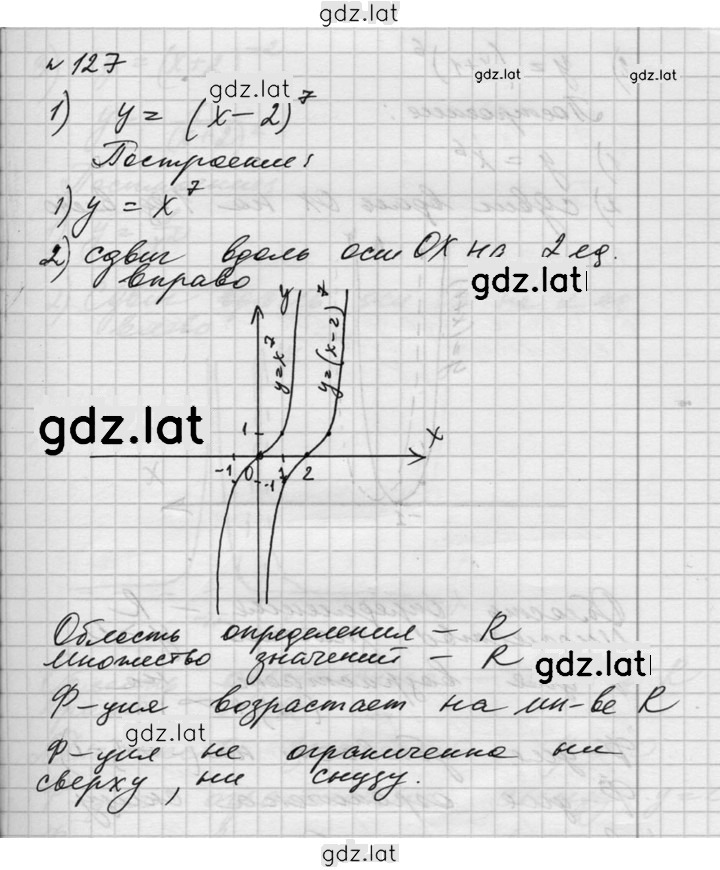 gdz.lat
№ 127
gdz.lat
gdz.lat
gdz.lat
1) y = (x-2)^7
Построение:
1) y = x^7
2) сдвиг вдоль оси OX на 2 ед.
вправо
gdz.lat
y
y=x^7
y=(x-2)^7
gdz.lat
1
x
-1 0 1 2
-1
Область определения - R
множество значений - R
gdz.lat
Ф-ция возрастает на мн-ве R
gdz.lat
Ф-ция не ограниченна ни
сверху, ни снизу.
gdz.lat